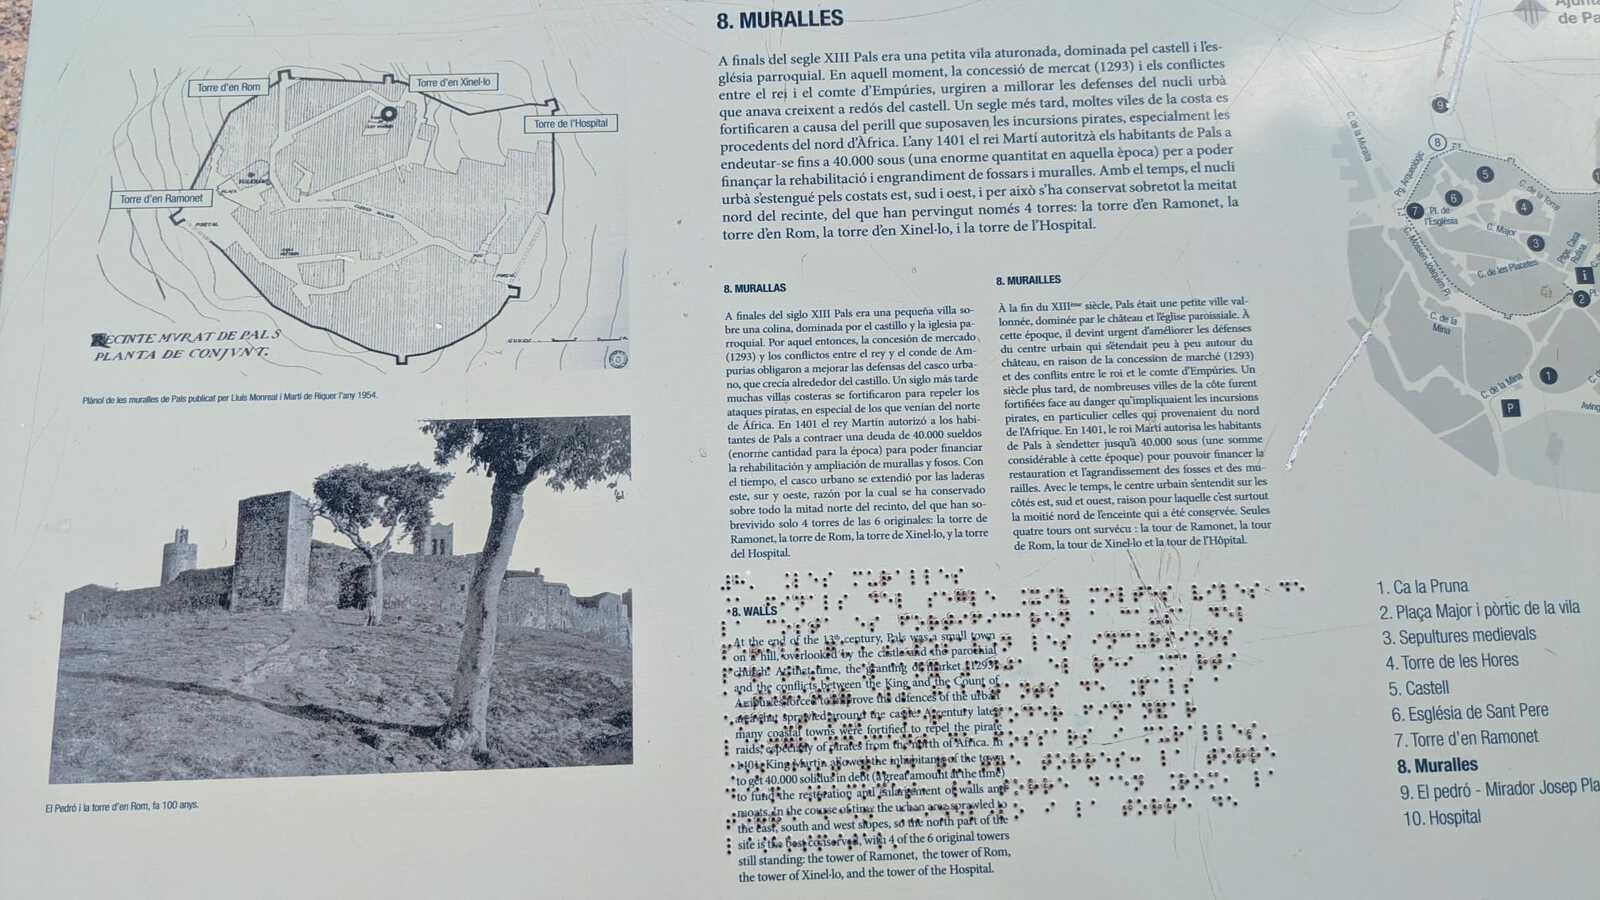 Torre d'en Rom
Torre d'en Xinel·lo
Torre de l'Hospital
Torre d'en Ramonet
RECINTE MVRAT DE PALS
PLANTA DE CONJVNT.
Plànol de les muralles de Pals publicat per Lluís Monreal i Martí de Riquer l'any 1954.
El Pedró i la torre d'en Rom, fa 100 anys.
8. MURALLES
A finals del segle XIII Pals era una petita vila aturonada, dominada pel castell i l'es-
glésia parroquial. En aquell moment, la concessió de mercat (1293) i els conflictes
entre el rei i el comte d'Empúries, urgiren a millorar les defenses del nucli urbà
que anava creixent a redós del castell. Un segle més tard, moltes viles de la costa es
fortificaren a causa del perill que suposaven les incursions pirates, especialment les
procedents del nord d'Àfrica. L'any 1401 el rei Martí autoritzà els habitants de Pals a
endeutar-se fins a 40.000 sous (una enorme quantitat en aquella època) per a poder
finançar la rehabilitació i engrandiment de fossars i muralles. Amb el temps, el nucli
urbà s'estengué pels costats est, sud i oest, i per això s'ha conservat sobretot la meitat
nord del recinte, del que han pervingut només 4 torres: la torre d'en Ramonet, la
torre d'en Rom, la torre d'en Xinel·lo, i la torre de l'Hospital.
8. MURALLAS
A finales del siglo XIII Pals era una pequeña villa so-
bre una colina, dominada por el castillo y la iglesia pa-
rroquial. Por aquel entonces, la concesión de mercado
(1293) y los conflictos entre el rey y el conde de Am-
purias obligaron a mejorar las defensas del casco urba-
no, que crecía alrededor del castillo. Un siglo más tarde
muchas villas costeras se fortificaron para repeler los
ataques piratas, en especial de los que venían del norte
de África. En 1401 el rey Martín autorizó a los habi-
tantes de Pals a contraer una deuda de 40.000 sueldos
(enorme cantidad para la época) para poder financiar
la rehabilitación y ampliación de murallas y fosos. Con
el tiempo, el casco urbano se extendió por las laderas
este, sur y oeste, razón por la cual se ha conservado
sobre todo la mitad norte del recinto, del que han so-
brevivido solo 4 torres de las 6 originales: la torre de
Ramonet, la torre de Rom, la torre de Xinel·lo, y la torre
del Hospital.
8. MURAILLES
À la fin du XIIIème siècle, Pals était une petite ville val-
lonnée, dominée par le château et l'église paroissiale. À
cette époque, il devint urgent d'améliorer les défenses
du centre urbain qui s'étendait peu à peu autour du
château, en raison de la concession de marché (1293)
et des conflits entre le roi et le comte d'Empúries. Un
siècle plus tard, de nombreuses villes de la côte furent
fortifiées face au danger qu'impliquaient les incursions
pirates, en particulier celles qui provenaient du nord
de l'Afrique. En 1401, le roi Martí autorisa les habitants
de Pals à s'endetter jusqu'à 40.000 sous (une somme
considérable à cette époque) pour pouvoir financer la
restauration et l'agrandissement des fosses et des mu-
railles. Avec le temps, le centre urbain s'entendit sur les
côtés est, sud et ouest, raison pour laquelle c'est surtout
la moitié nord de l'enceinte qui a été conservée. Seules
quatre tours ont survécu : la tour de Ramonet, la tour
de Rom, la tour de Xinel·lo et la tour de l'Hôpital.
8. WALLS
At the end of the 13th century, Pals was a small town
on a hill, overlooked by the castle and the parochial
church. At that time, the granting of market (1293)
and the conflicts between the King and the Count of
Ampuries forced to improve the defences of the urban
area that sprawled around the castle. A century later
many coastal towns were fortified to repel the pirate
raids, especially of pirates from the north of Africa. In
1401, King Martin allowed the inhabitants of the town
to get 40.000 solidus in debt (a great amount at the time)
to fund the restoration and enlargement of walls and
moats. In the course of time the urban area sprawled to
the east, south and west slopes, so the north part of the
site is the best conserved, with 4 of the 6 original towers
still standing: the tower of Ramonet, the tower of Rom,
the tower of Xinel·lo, and the tower of the Hospital.
de Pa
C. de la Muralla
Pg. Arqueològic
Pl. de
l'Església
C. de la Torre
C. Major
C. de les Placetes
C. Mossèn Joaquim Pi
C. de la
Mina
C. de la Mina
P
i
9
8
5
6
4
7
3
2
1
1. Ca la Pruna
2. Plaça Major i pòrtic de la vila
3. Sepultures medievals
4. Torre de les Hores
5. Castell
6. Església de Sant Pere
7. Torre d'en Ramonet
8. Muralles
9. El pedró - Mirador Josep Pla
10. Hospital